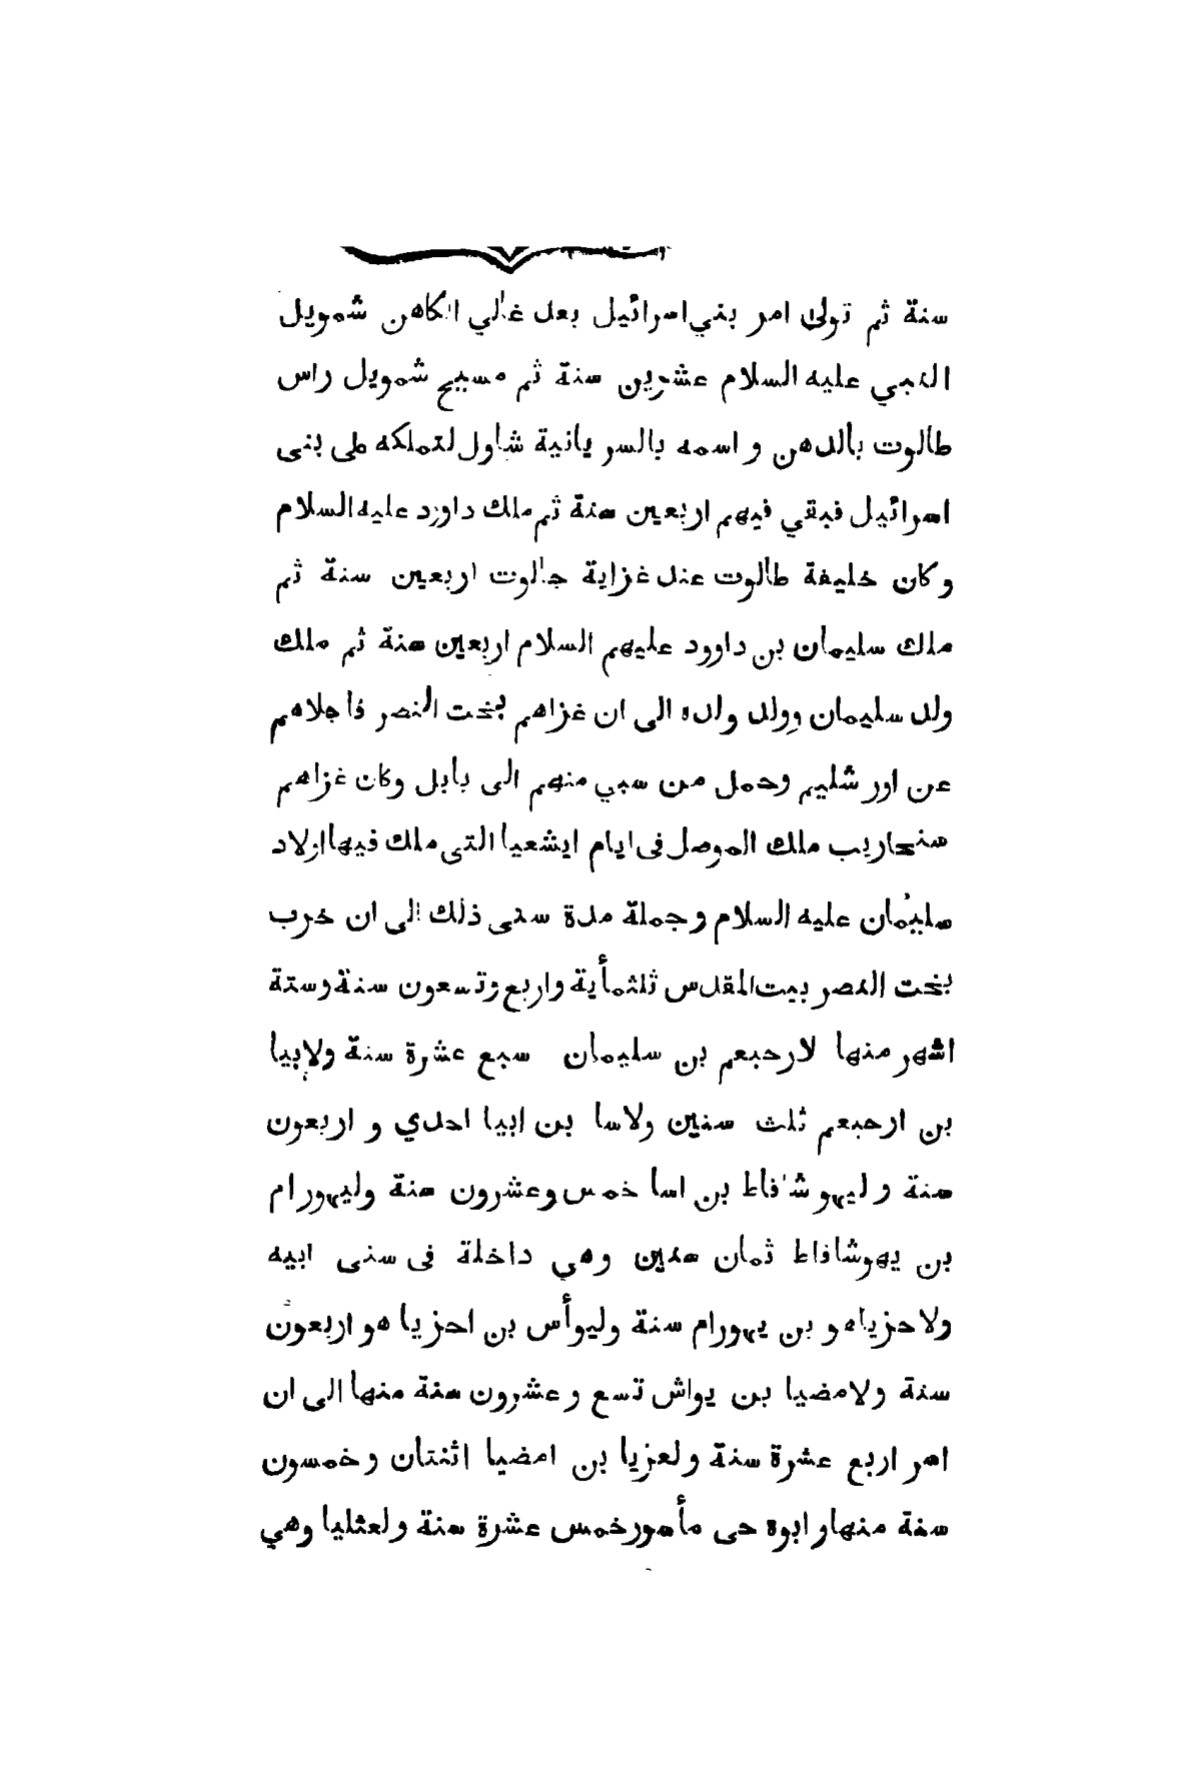 سنة ثم تولى امر بني اسرائيل بعد غالي الكاهن شمويل
النبي عليه السلام عشرين سنة ثم مسيح شمويل راس
طالوت بالدهن و اسمه بالسر يانية شاول لتملكه على بنى
اسرائيل فبقي فيهم اربعين سنة ثم ملك داورد عليه السلام
وكان خليفة طالوت عند غزاية جالوت اربعين سنة ثم
ملك سليمان بن داوود عليهم السلام اربعين سنة ثم ملك
ولد سليمان وولد ولده الى ان غزاهم بخت النصر فا جلاهم
عن اور شليم وحمل من سبي منهم الى بابل وكان غزاهم
سنحاريب ملك الموصل فى ايام ايشعيا التى ملك فيها اولاد
سليمان عليه السلام وجملة مدة سنى ذلك الى ان خرب
بخت النصر بيت المقدس ثلثمأية واربع وتسعون سنة وستة
اشهر منها لارحبعم بن سليمان سبع عشرة سنة ولابيا
بن ارحبعم ثلث سنين ولاسا بن ابيا احدي و اربعون
سنة و ليهو شافاط بن اسا خمس وعشرون سنة وليهورام
بن يهوشافاط ثمان سنين وهي داخلة فى سنى ابيه
ولاحزياه و بن يهورام سنة وليوأس بن احزيا هو اربعون
سنة ولامضيا بن يواش تسع و عشرون سنة منها الى ان
اسر اربع عشرة سنة ولعزيا بن امضيا اثنتان وخمسون
سنة منها و ابوه حى مأسور خمس عشرة سنة ولعثليا وهي